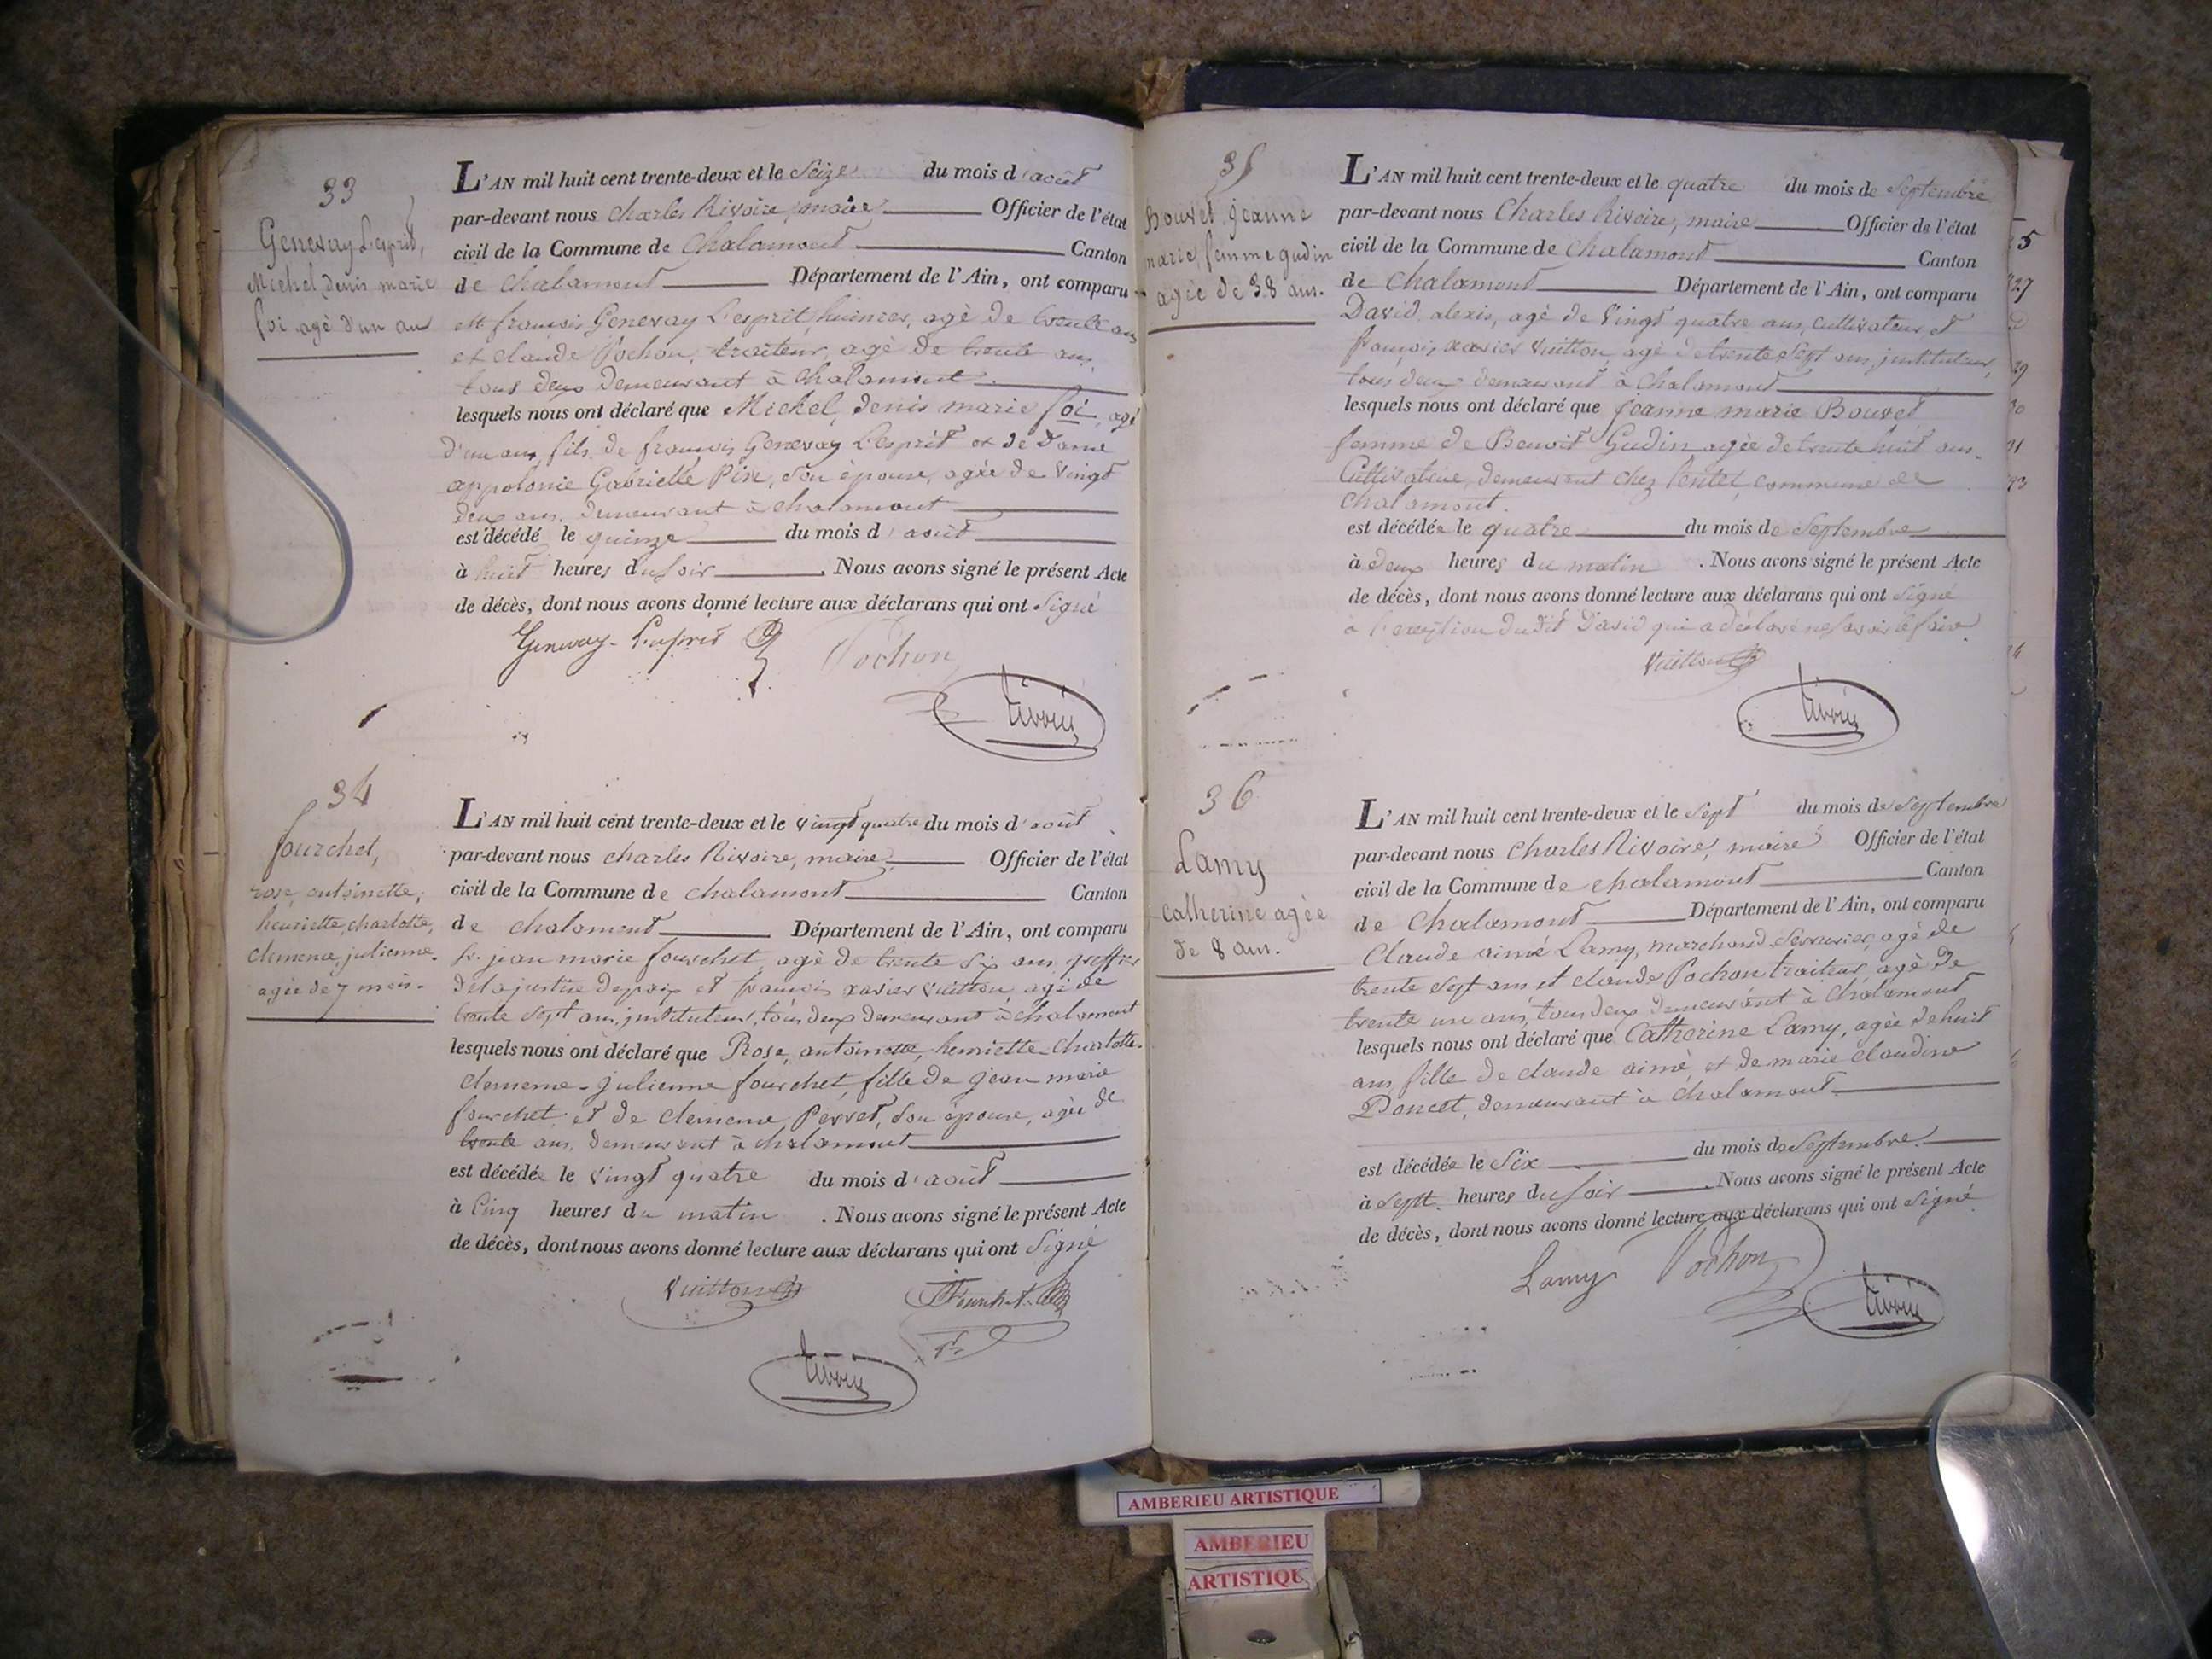 33
Genevay L'esprit,
Michel, denis marie
foi agé d'un an
L'AN mil huit cent trente-deux et le Seize du mois d'août
par-devant nous Charles Rivoire, maire Officier de l'état
civil de la Commune de Chalamont Canton
de Chalamont Département de l'Ain, ont comparu
françois Genevay L'esprit, huissier, agé de trente ans
et claude Pochon, traiteur, agé de trente ans,
tous deux Demeurant à Chalamont
lesquels nous ont déclaré que Michel, denis marie foi, agé
d'un an, fils de françois Genevay L'esprit et de Dame
appolonie Gabrielle Pine, son épouse, agée de Vingt
deux ans, demeurant à chalamont
est décédé le quinze du mois d'août
à huit heures du soir. Nous avons signé le présent Acte
de décès, dont nous avons donné lecture aux déclarans qui ont Signé
Genevay-L'esprit Pochon
Rivoire
34
fourchet,
rose, antoinette,
henriette, charlotte,
clemence, julienne.
agée de 7 mois.
L'AN mil huit cent trente-deux et le Vingt quatre du mois d'août
par-devant nous charles Rivoire, maire Officier de l'état
civil de la Commune de chalamont Canton
de chalamont Département de l'Ain, ont comparu
Sr. jean marie fourchet, agé de trente six ans, greffier
de la justice de paix et françois xavier Vuitton, agé de
trente sept ans, instituteur, tous deux demeurant à chalamont
lesquels nous ont déclaré que Rose, antoinette, henriette-Charlotte-
clemence-julienne fourchet, fille de jean marie
fourchet et de clemence Perret, son épouse, agée de
trente ans, demeurant à chalamont
est décédée le Vingt quatre du mois d'août
à Cinq heures du matin. Nous avons signé le présent Acte
de décès, dont nous avons donné lecture aux déclarans qui ont Signé
Vuitton Fourchet
Rivoire
35
Bouvet jeanne
marie, femme gudin
agée de 38 ans.
L'AN mil huit cent trente-deux et le quatre du mois de Septembre
par-devant nous Charles Rivoire, maire Officier de l'état
civil de la Commune de Chalamont Canton
de Chalamont Département de l'Ain, ont comparu
David alexis, agé de Vingt quatre ans, cultivateur et
françois xavier Vuitton, agé de trente Sept ans, instituteur,
tous deux demeurant à Chalamont
lesquels nous ont déclaré que jeanne marie Bouvet
femme de Benoit Gudin agée de trente huit ans.
Cultivatrice, demeurant chez commune de
Chalamont.
est décédée le quatre du mois de Septembre
à deux heures du matin. Nous avons signé le présent Acte
de décès, dont nous avons donné lecture aux déclarans qui ont Signé
à l'exeption du dit David qui a déclaré ne savoir le faire
Vuitton
Rivoire
36
Lamy
catherine agée
de 8 ans.
L'AN mil huit cent trente-deux et le Sept du mois de Septembre
par-devant nous Charles Rivoire, maire Officier de l'état
civil de la Commune de chalamont Canton
de Chalamont Département de l'Ain, ont comparu
Claude aimé Lamy, marchand Serrurier, agé de
trente Sept ans et claude Pochon traiteur, agé de
trente un ans, tous deux demeurant à chalamont
lesquels nous ont déclaré que Catherine Lamy, agée de huit
ans, fille de claude aimé, et de marie claudine
Doncet, demeurant à Chalamont
est décédée le Six du mois de Septembre
à Sept heures du soir. Nous avons signé le présent Acte
de décès, dont nous avons donné lecture aux déclarans qui ont Signé
Lamy Pochon
Rivoire
AMBERIEU ARTISTIQUE
AMBERIEU
ARTISTIQUE